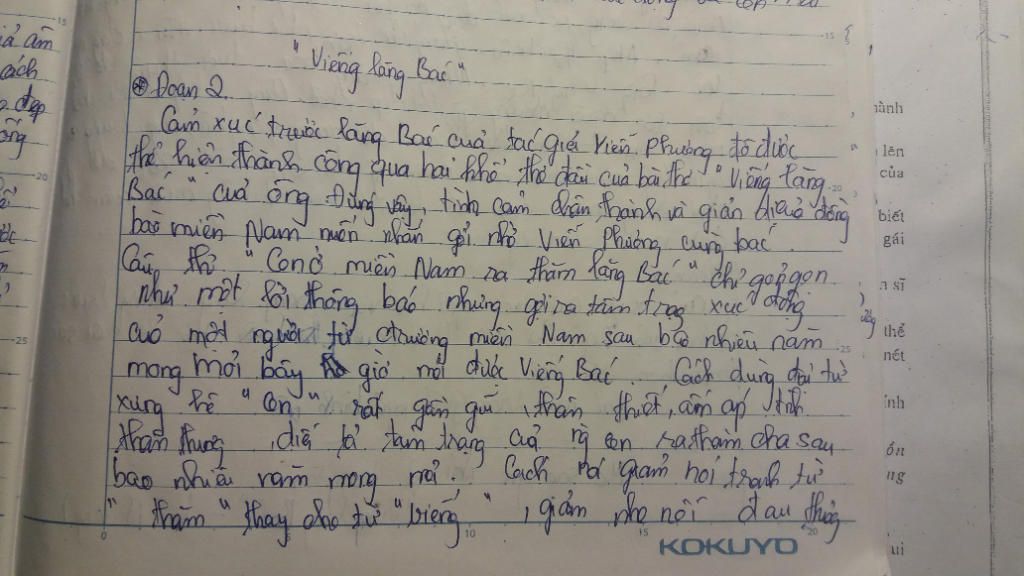 ả ấm
cách
đẹp
ống
"Viếng lăng Bác"
Đoạn 2
Cảm xúc trước lăng Bác cuả tác giả Viễn Phương đã được
thể hiện thành công qua hai khổ thơ đầu cuả bài thơ "Viếng lăng
Bác" cuả ông. Đúng vậy, tình cảm chân thành và giản dị cuả đồng
bào miền Nam muốn nhắn gởi nhờ Viễn Phương cùng bác.
Câu thơ "Con ở miền Nam ra thăm lăng Bác" chỉ gọn gọn
như một lời thông báo nhưng gợi ra tâm trạg xúc động
cuả một người từ chiường miền Nam sau bao nhiêu năm
mong mỏi bây giờ mới được Viếng Bác. Cách dùng đại từ
xưng hô "Con" rất gần gũi, thân thiết, ấm áp tình
thân thươg, diễ tả tâm trạng cuả ng con ra thăm cha sau
bao nhiêu năm mong mỏi. Cách nói giảm nói tránh từ
"thăm" thay cho từ "viếng", giảm nhẹ nỗi đau thươg
KOKUYO
ành
lên
của
biết
gái
sĩ
thể
nét
ính
ng
ui